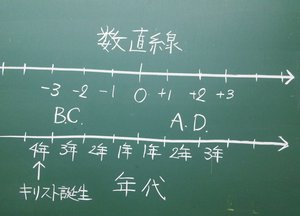 数直線
-3 -2 -1 0 +1 +2 +3
B.C. A.D.
4年 3年 2年 1年 1年 2年 3年
キリスト誕生 年代